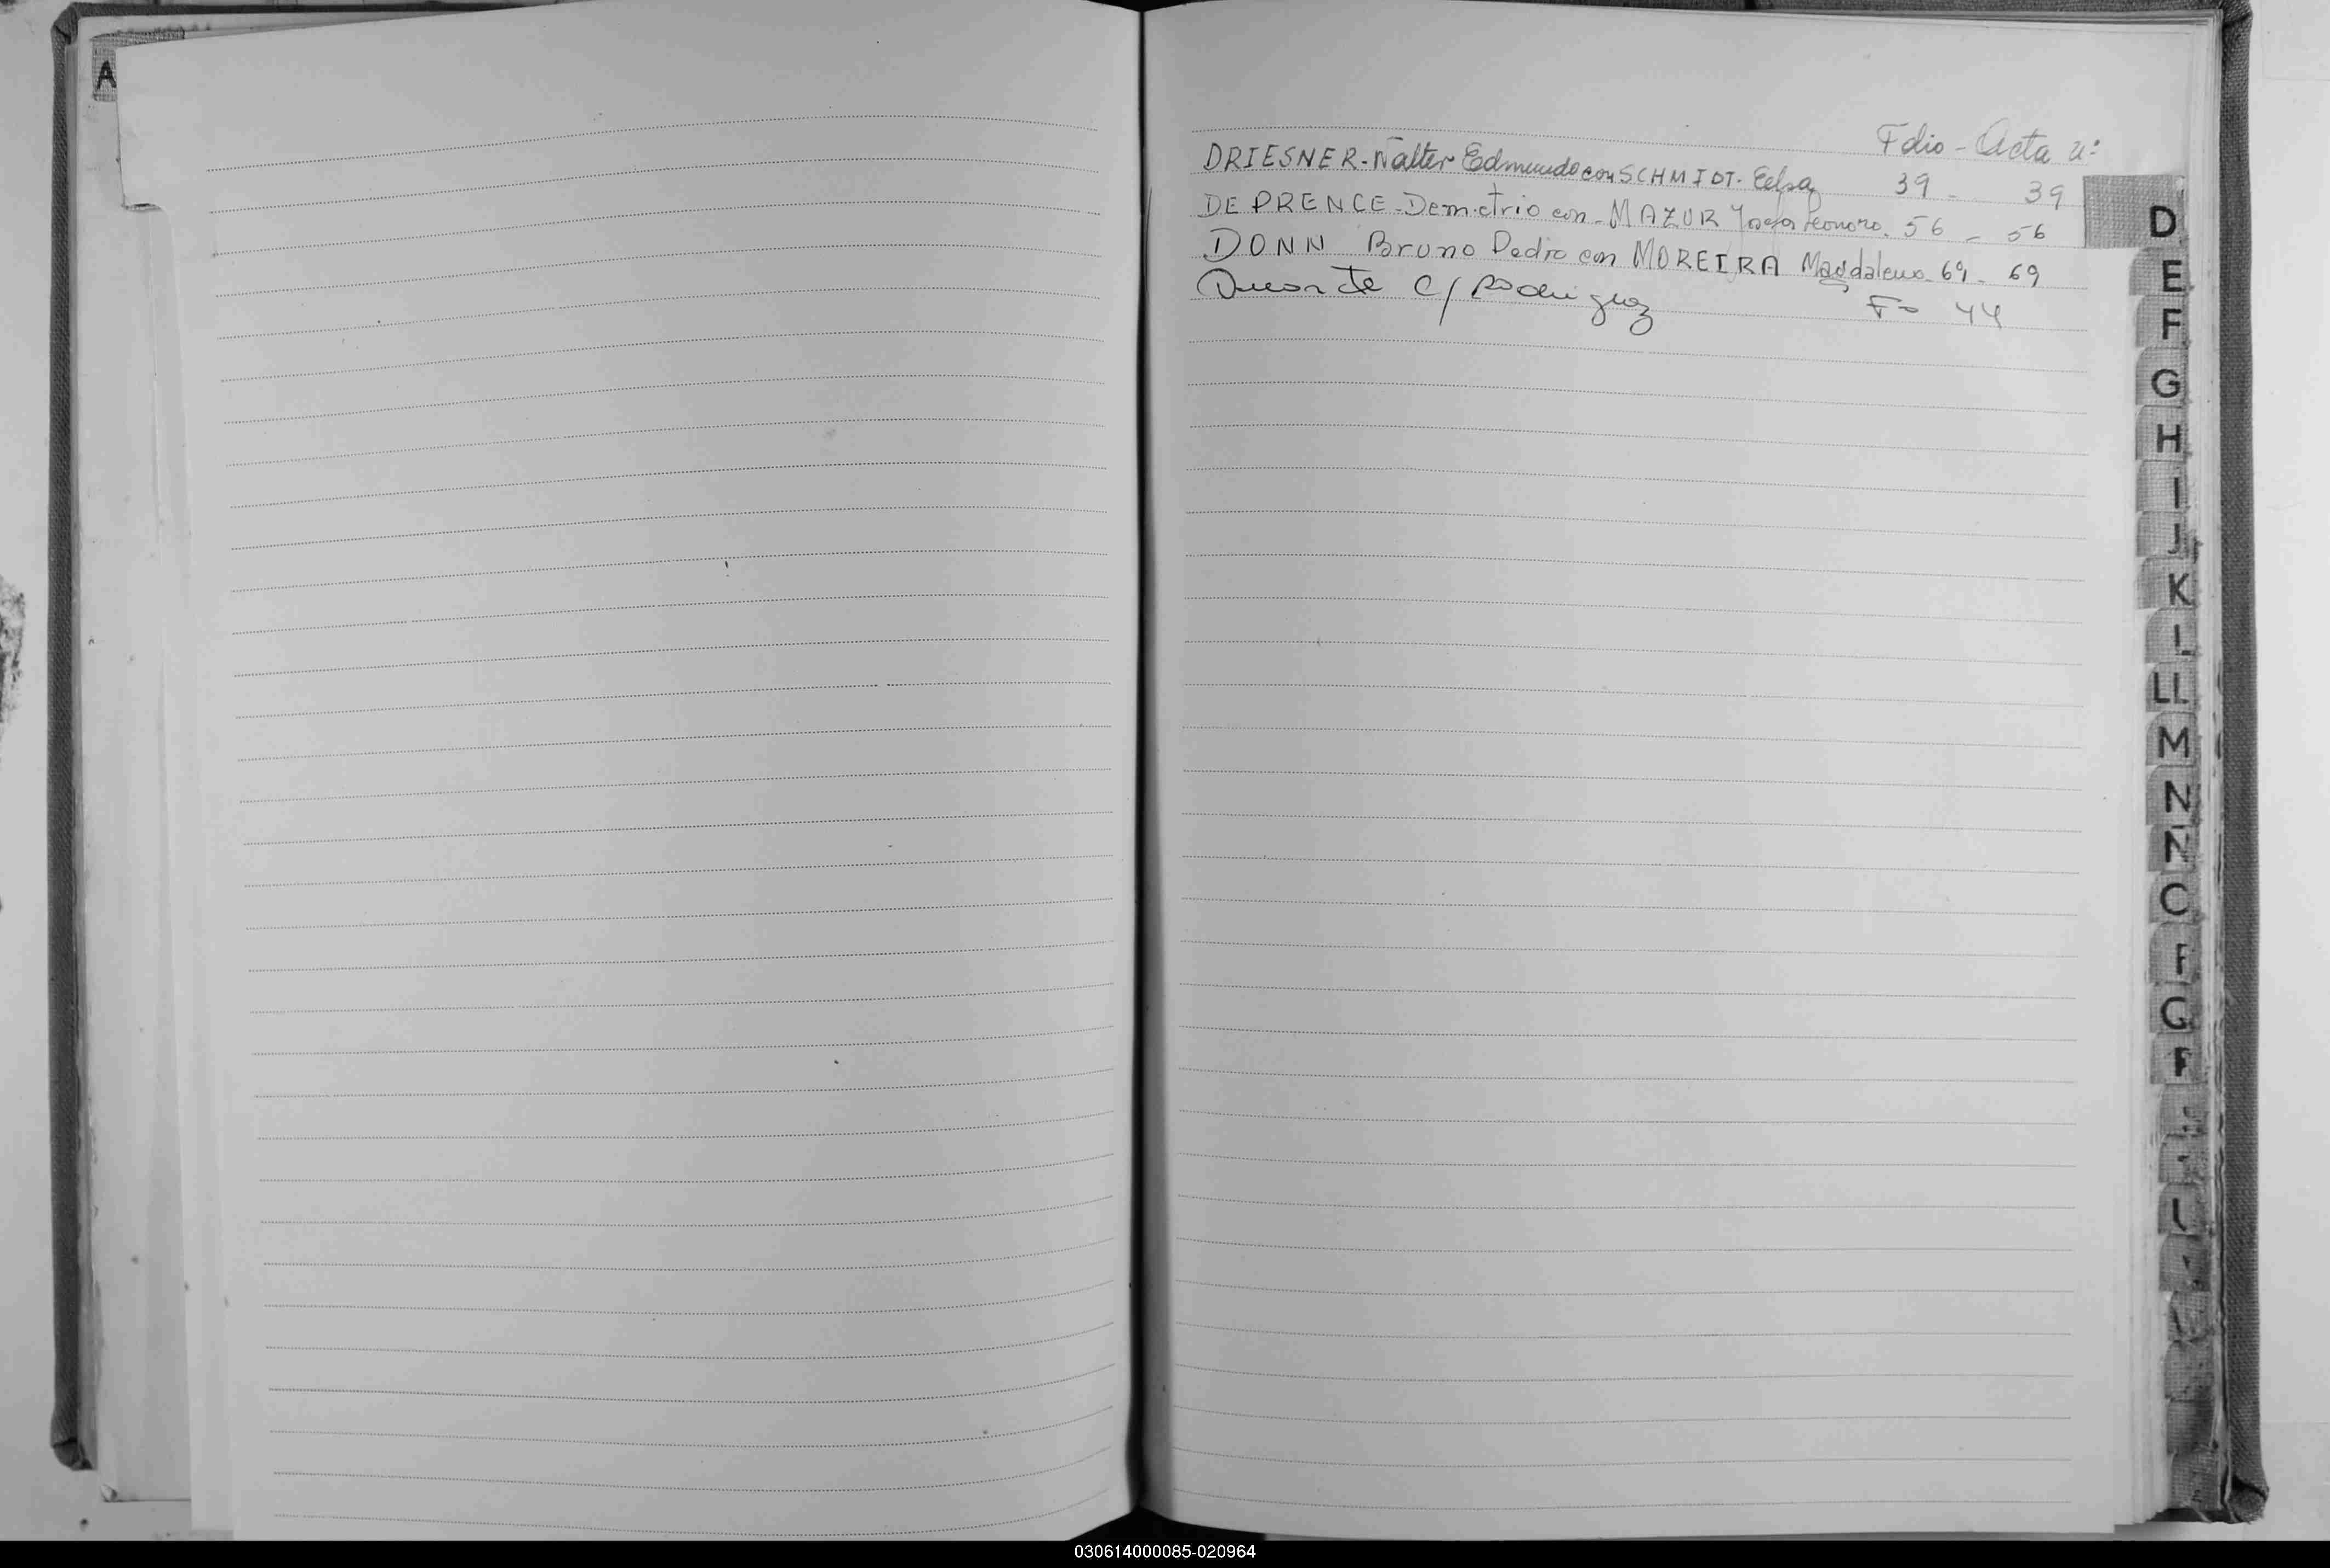 A
Folio - Acta nº
DRIESNER - Walter Edmundo con SCHMIDT - Edsa 39 - 39
DE PRENCE - Demetrio con - MAZUR Josefa Leonora. 56 - 56
DONN Bruno Pedro con MOREIRA Magdalena 69 - 69
Duarte c/ Rodriguez Fº 44
D
E
F
G
H
I
J
K
L
LL
M
N
Ñ
O
P
Q
R
030614000085-020964